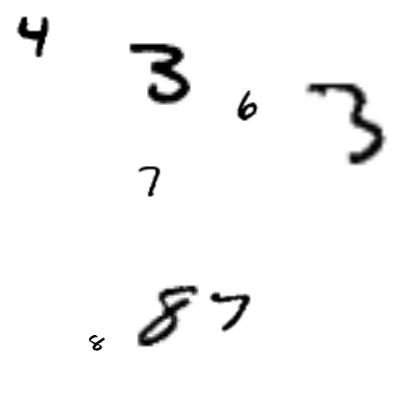 4 3 6 3
7
8 8 7